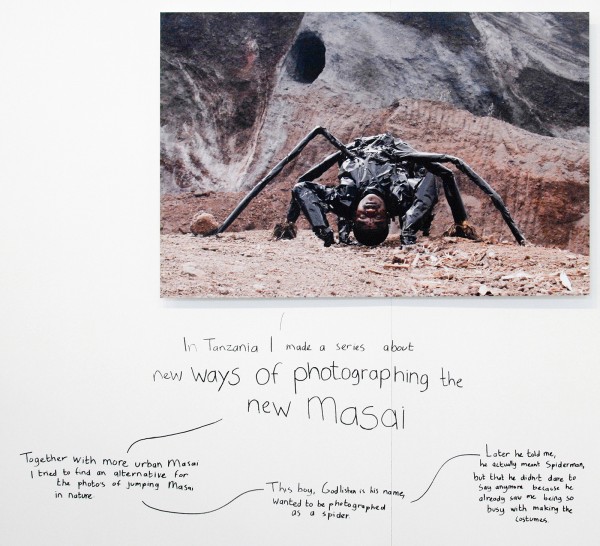 In Tanzania I made a series about
new ways of photographing the
new Masai
Together with more urban Masai
I tried to find an alternative for
the photos of jumping Masai
in nature
This boy, Godlisten is his name,
wanted to be photographed
as a spider.
Later he told me,
he actually meant Spiderman,
but that he didn't dare to
say anymore because he
already saw me being so
busy with making the
costumes.